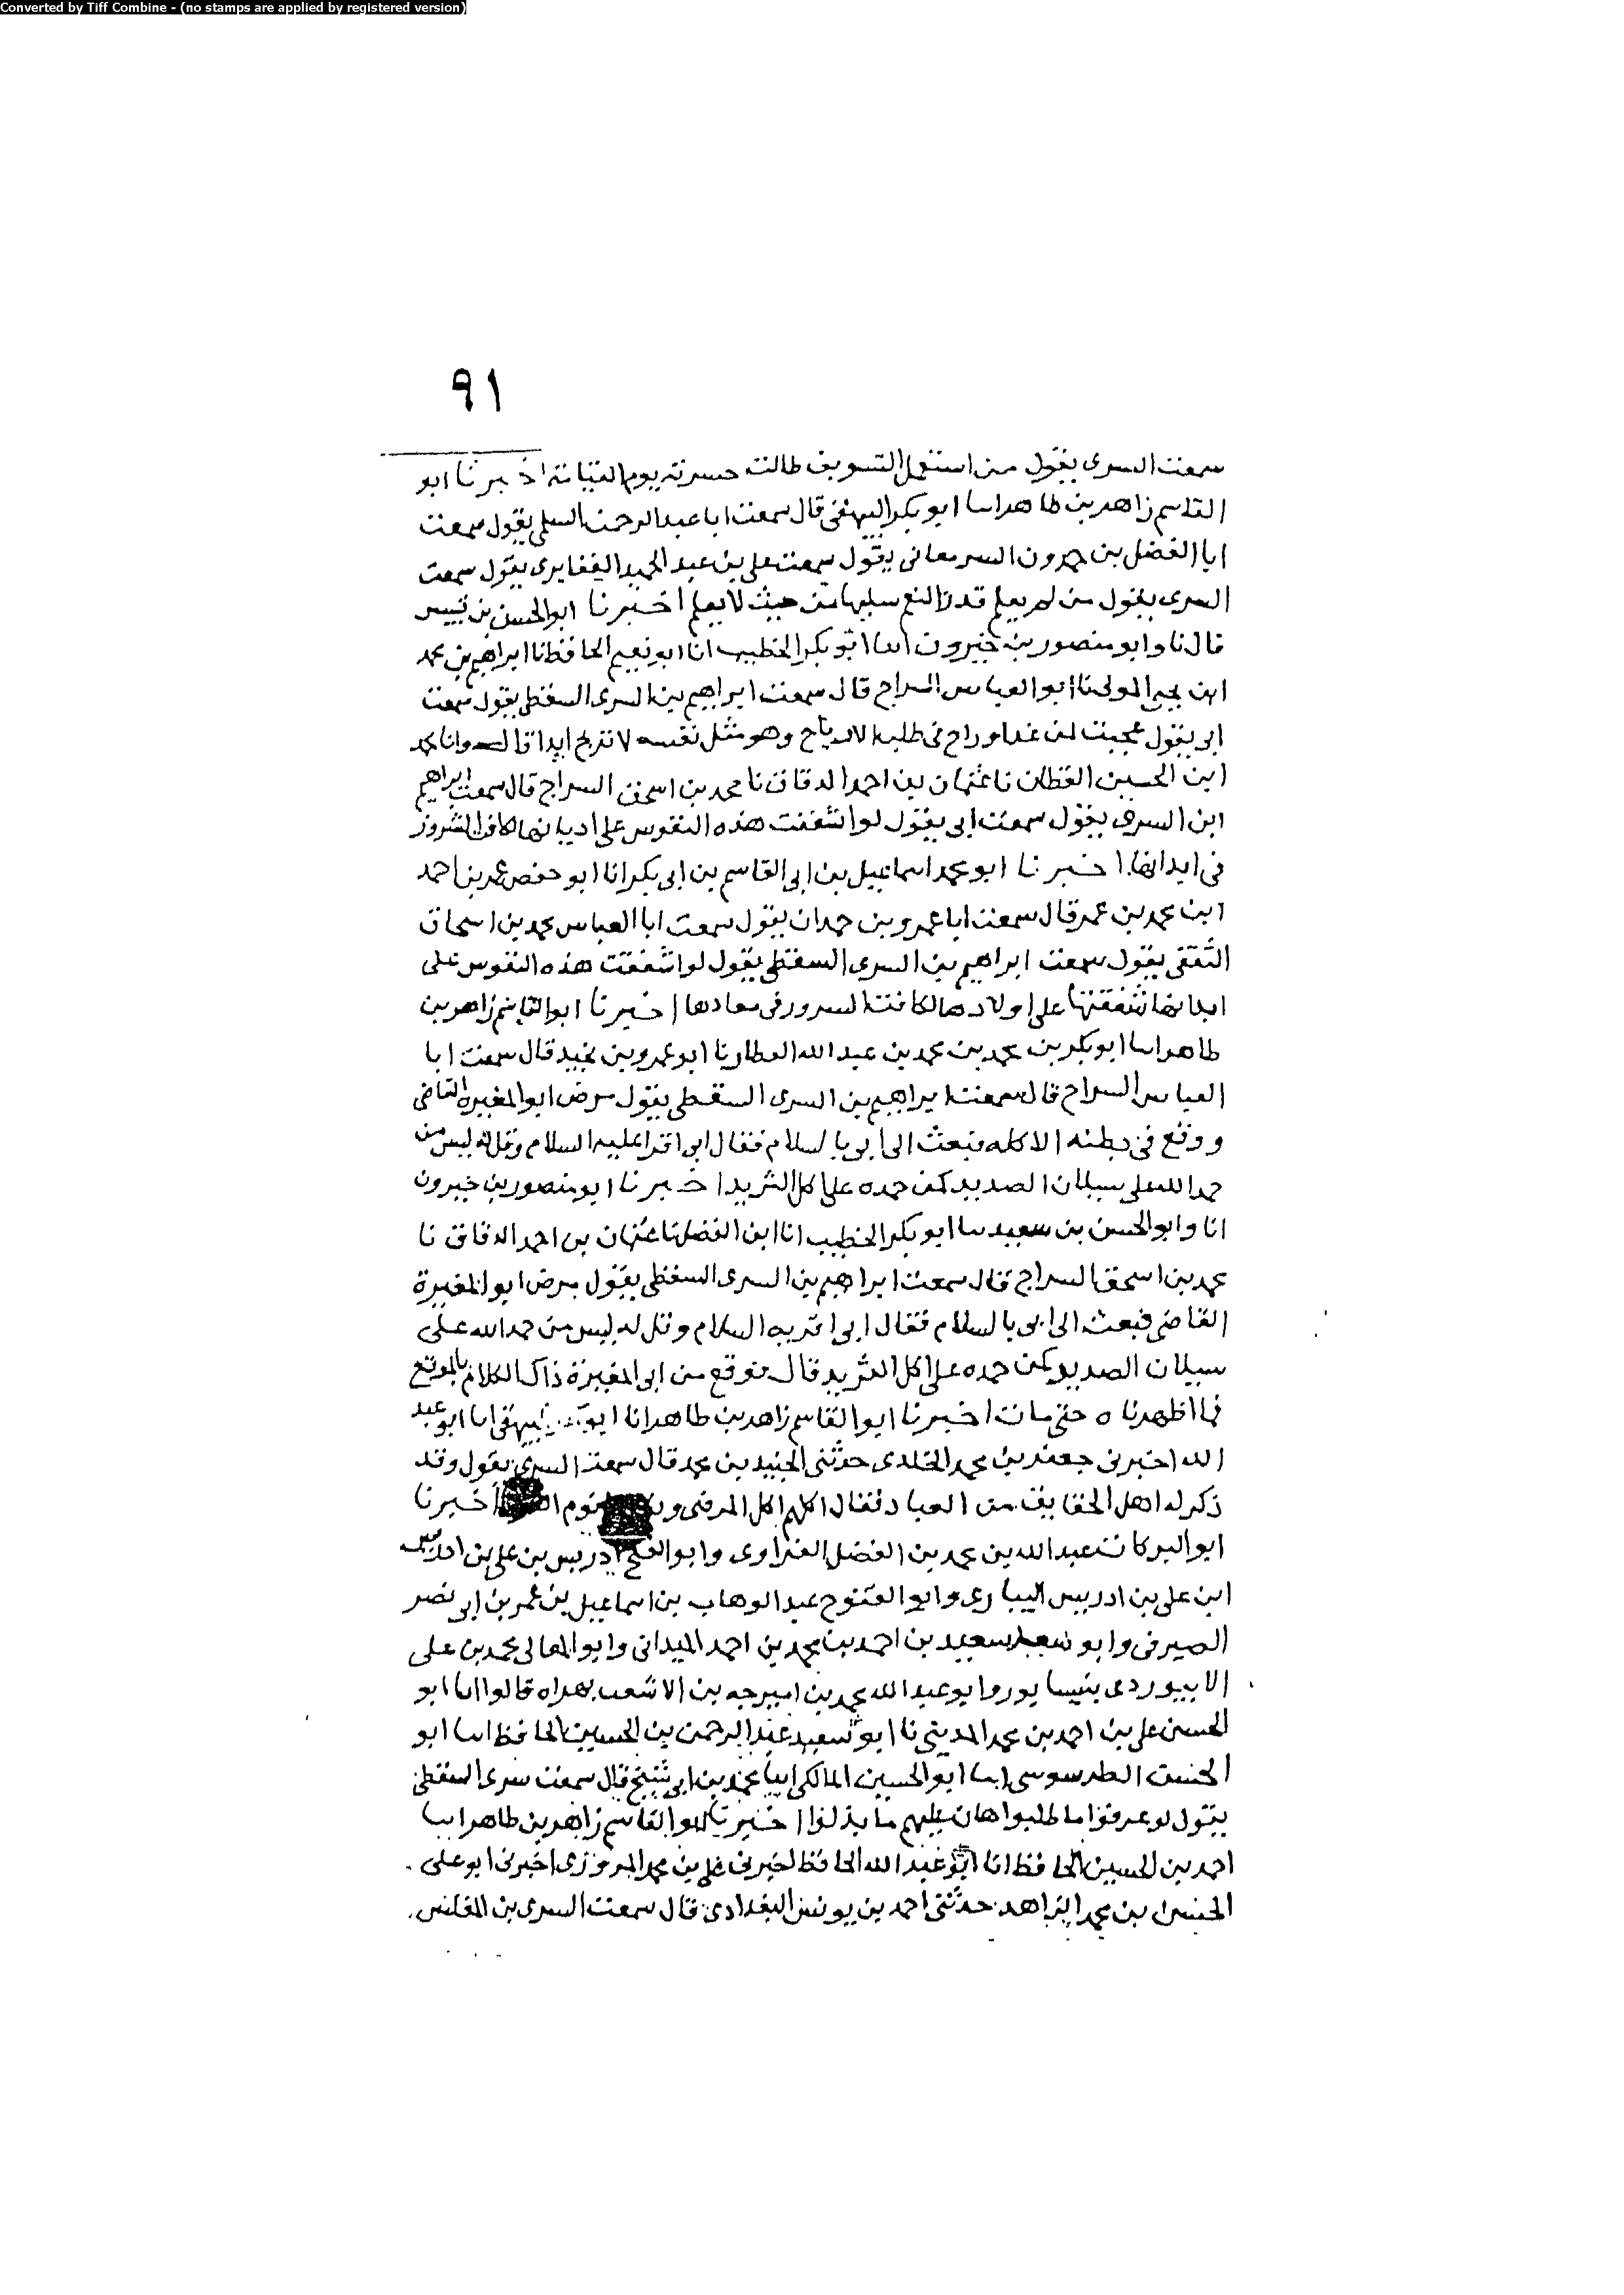 Converted by Tiff Combine - (no stamps are applied by registered version)
٩١
سمعت السرى يقول من استعمل التسويف طالت حسرته يوم القيامة اخبرنا ابو
القاسم زاهر بن طاهر انبا ابو بكر البيهقى قال سمعت ابا عبد الرحمن السلمى يقول سمعت
ابا الفضل بن حمدون السرمعانى يقول سمعت على بن عبد الحميد الغضايرى يقول سمعت
السرى يقول من لم يعلم قدر النعم سلبها من حيث لا يعلم اخبرنا ابو الحسن بن قبيس
قال نا وابو منصور بن خيرون انبا ابو بكر الخطيب انا ابو نعيم الحافظ نا ابراهيم بن محمد
ابن يحيى المولى نا ابو العباس السراج قال سمعت ابراهيم بن السرى السقطى يقول سمعت
ابى يقول عجبت لمن غدا وراح فى طلب الارباح وهو مثل نفسه لا تربح ابدا قال وانا محمد
ابن الحسين القطان نا عثمان بن احمد الدقاق نا محمد بن اسحق السراج قال سمعت ابراهيم
ابن السرى يقول سمعت ابى يقول لو اشفقت هذه النفوس على اديانها
فى ابدانها اخبرنا ابو محمد اسماعيل بن ابى القاسم بن ابى بكر انا ابو حفص عمر بن احمد
ابن محمد بن عمر قال سمعت ابا عمرو بن حمدان يقول سمعت ابا العباس محمد بن اسحاق
الثقفى يقول سمعت ابراهيم بن السرى السقطى يقول لو اشفقت هذه النفوس على
ابدانها شفقتها على اولادها لكانت السرور فى معادها اخبرنا ابو القاسم زاهر بن
طاهر انبا ابو بكر بن محمد بن محمد بن عبد الله العطار نا ابو عمرو بن نجيد قال سمعت ابا
العباس السراج قال سمعت ابراهيم بن السرى السقطى يقول مرض ابو المغيرة القاضى
ووقع فى بطنه الاكله فبعث الى ابى بالسلام فقال ابى اقرا عليه السلام وقل له ليس من
حمد الله على سيلان الصديد كمن حمده على اكل الثريد اخبرنا ابو منصور بن خيرون
انا وابو الحسن بن سعيد نا ابو بكر الخطيب انا ابن الفضل نا عثمان بن احمد الدقاق نا
محمد بن اسحق السراج قال سمعت ابراهيم بن السرى السقطى يقول مرض ابو المغيرة
القاضى فبعث الى ابى بالسلام فقال ابى اقريه السلام وقل له ليس من حمد الله على
سيلان الصديد كمن حمده على اكل الثريد قال فوقع من ابى المغيرة ذاك الكلام بالموقع
فما اظهرناه حتى مات اخبرنا ابو القاسم زاهر بن طاهر انا البيهقى انا ابو عبد
الله اخبرنى جعفر بن محمد الخلدى حدثنى الجنيد بن محمد قال سمعت السرى يقول وقد
ذكر له اهل الحقايق من العباد فقال اكلهم اكل المرضى نوم اخبرنا
ابو البركات عبد الله بن محمد بن الفضل الفراوى وابو الفتح ادريس بن على بن ادريس
ابن على بن ادريس البيارى وابو الفتوح عبد الوهاب بن اسماعيل بن عمر بن ابى نصر
الصيرفى وابو سعيد بن احمد بن محمد بن احمد الميدانى وابو المعالى محمد بن على
الابيوردى بنيسابور وابو عبد الله محمد بن اميرجه بن الاشعب بهراه قالوا انا ابو
الحسن على بن احمد بن محمد المدينى نا ابو سعيد عبد الرحمن بن الحسين الحافظ انبا ابو
الحسن الطرسوسى انبا ابو الحسين المالكى انبا محمد بن ابى شيخ قال سمعت سرى السقطى
يقول لو عرفوا ما طلبوا هان عليهم ما بذلوا اخبرنا ابو القاسم زاهر بن طاهر انبا
احمد بن الحسين الحافظ انا ابو عبد الله الحافظ اخبرنى على بن محمد المروزى اخبرنى ابو على
الحسن بن محمد الزاهد حدثنى احمد بن يونس البغدادى قال سمعت السرى بن المغلس